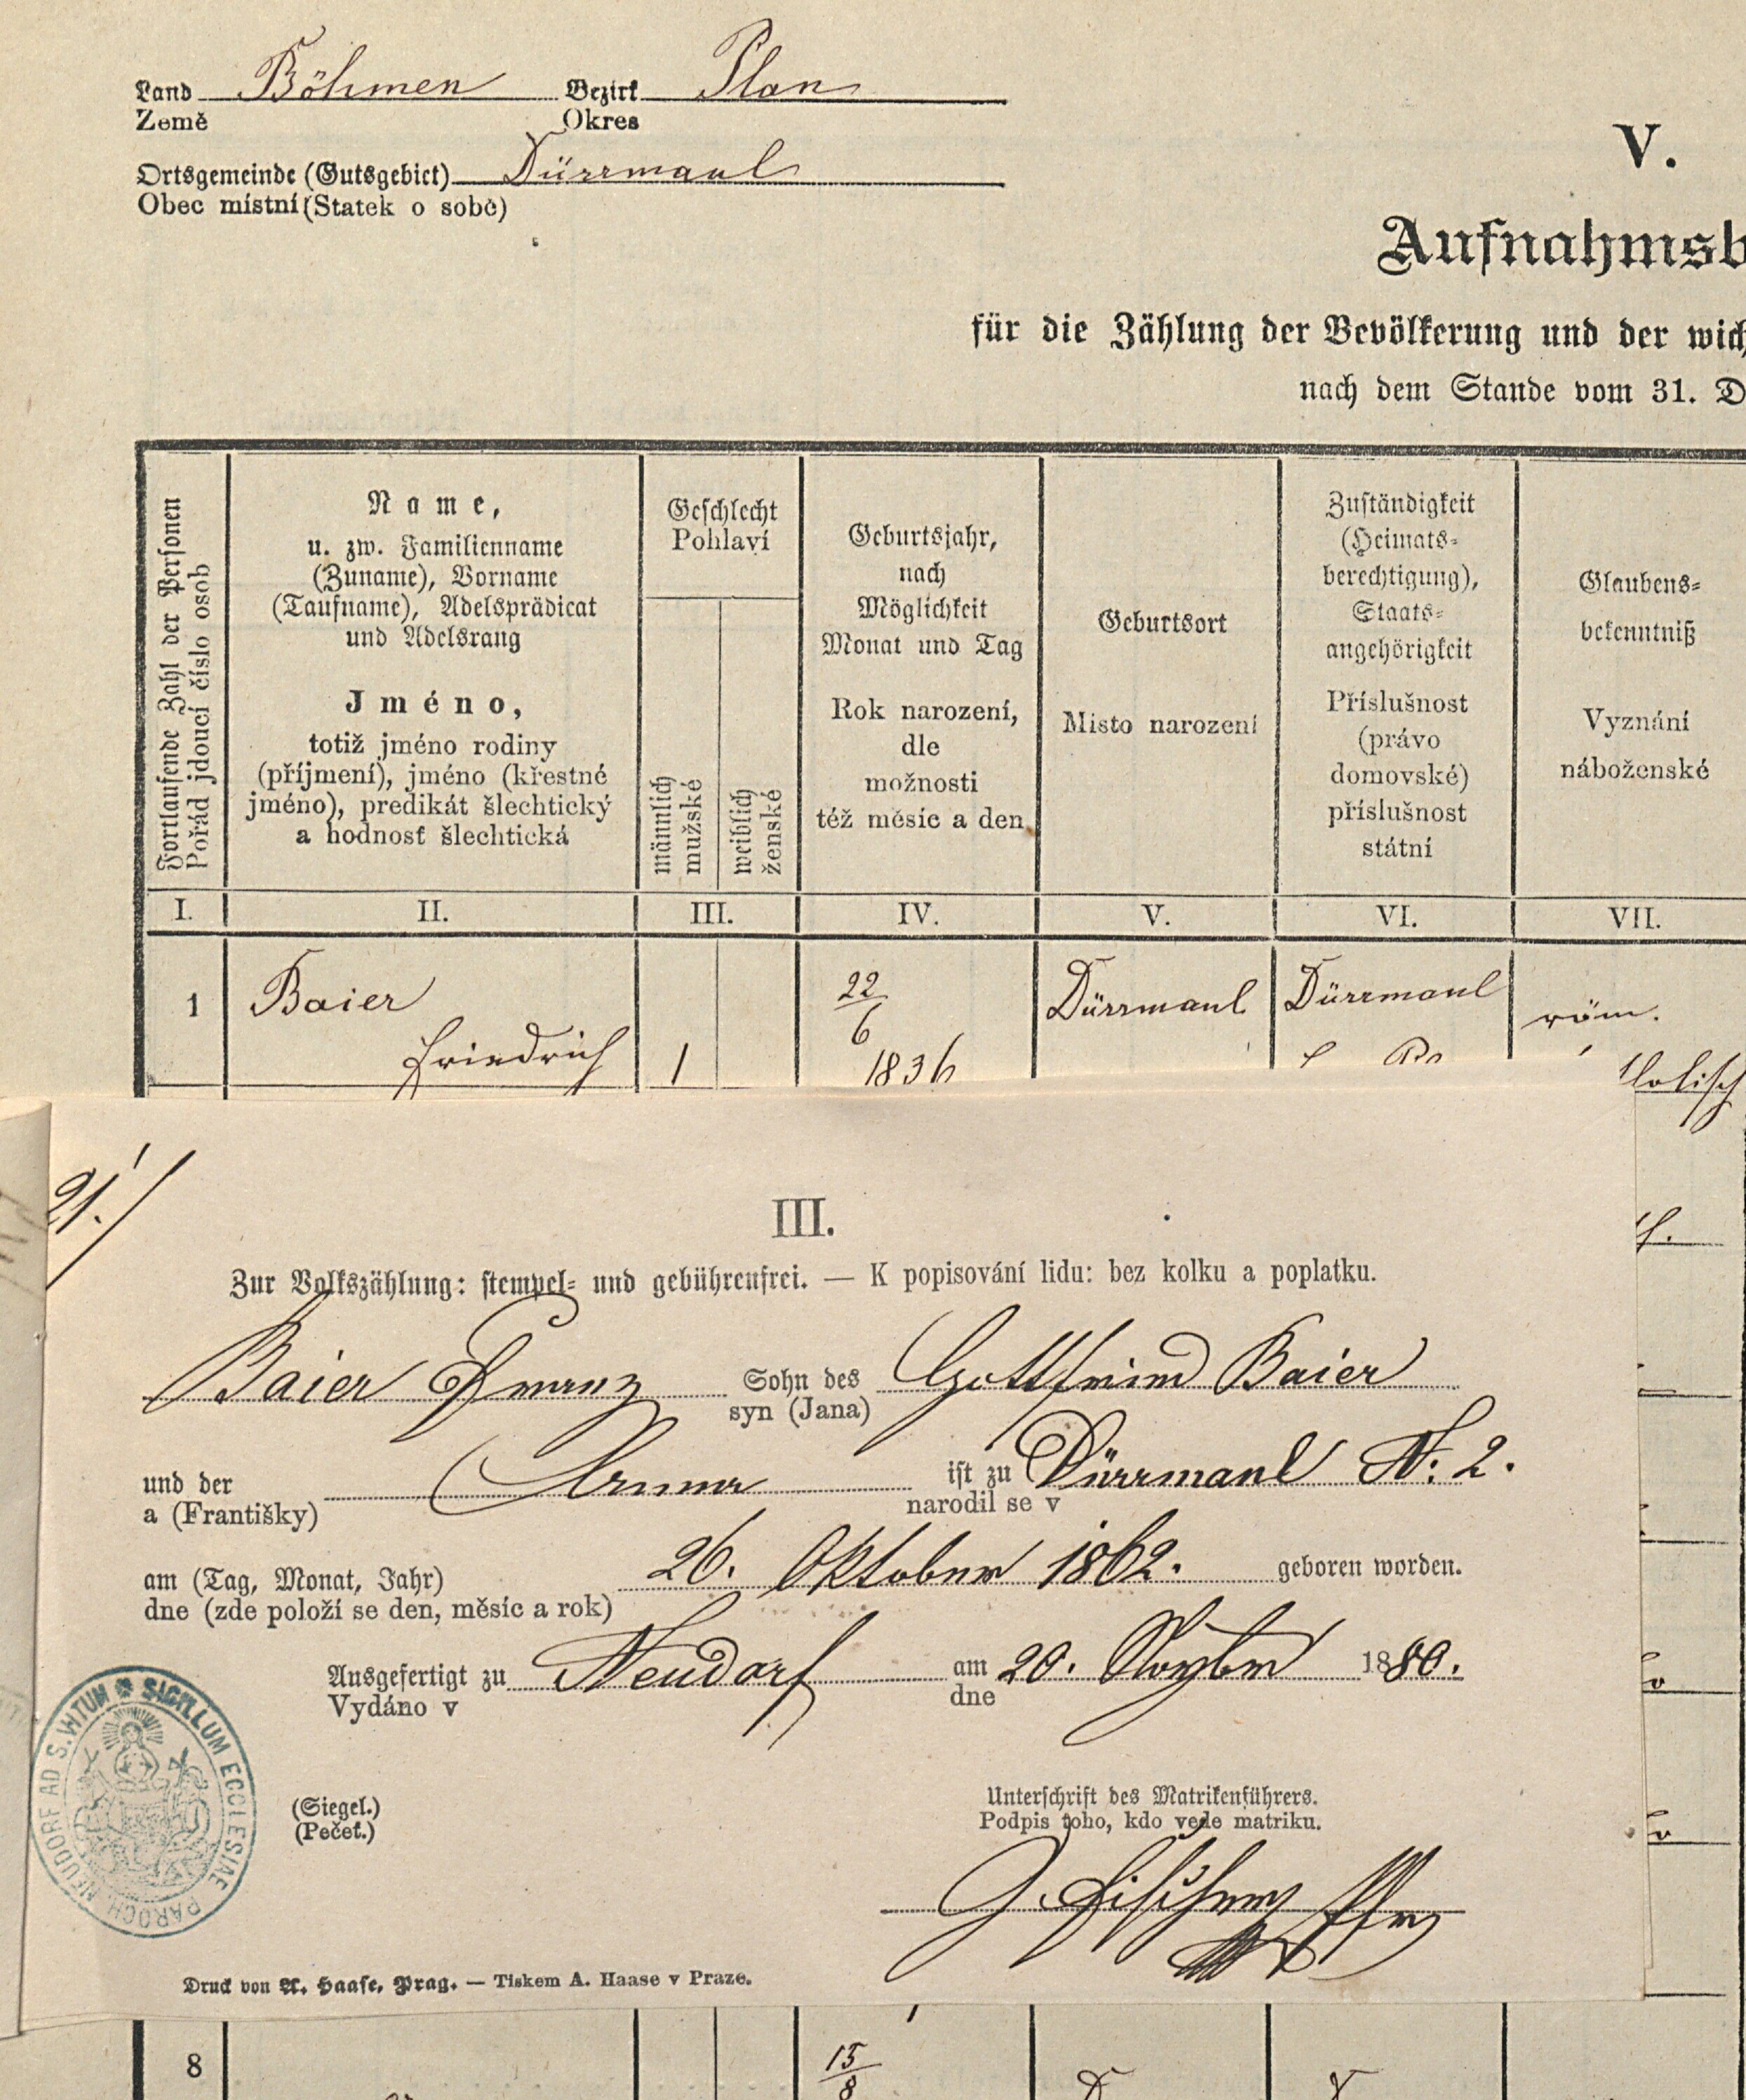 Land Böhmen Bezirk Plan
Země Okres
Ortsgemeinde (Gutsgebiet) Dürrmaul
Obec místní (Statek o sobě)
V.
Aufnahmsb
für die Zählung der Bevölkerung und der wich
nach dem Stande vom 31. D
Fortlaufende Zahl der Personen
Pořád jdoucí číslo osob
Name,
u. zw. Familienname
(Zuname), Vorname
(Taufname), Adelsprädicat
und Adelsrang
Jméno,
totiž jméno rodiny
(příjmení), jméno (křestné
jméno), predikát šlechtický
a hodnosť šlechtická
Geschlecht
Pohlaví
männlich
mužské
weiblich
ženské
Geburtsjahr,
nach
Möglichkeit
Monat und Tag
Rok narození,
dle
možnosti
též měsíc a den
Geburtsort
Místo narození
Zuständigkeit
(Heimats-
berechtigung),
Staats-
angehörigkeit
Příslušnost
(právo
domovské)
příslušnost
státní
Glaubens-
bekenntniß
Vyznání
náboženské
I. II. III. IV. V. VI. VII.
1 Baier 22/6 Dürrmaul Dürrmaul röm.
Friedrich 1 1836
21.
III.
Zur Volkszählung: stempel- und gebührenfrei. — K popisování lidu: bez kolku a poplatku.
Baier Franz Sohn des Gottfried Baier
syn (Jana)
und der Anna ist zu Dürrmaul N. 2.
a (Františky) narodil se v
am (Tag, Monat, Jahr) 26. Oktober 1862. geboren worden.
dne (zde položí se den, měsíc a rok)
Ausgefertigt zu Neudorf am 20. Novbr 1880.
Vydáno v dne
SIGILLUM ECCLESIAE PAROCH. NEUDORF AD S. VITUM
(Siegel.)
(Pečeť.)
Unterschrift des Matrikenführers.
Podpis toho, kdo vede matriku.
Druck von A. Haase, Prag. — Tiskem A. Haase v Praze.
8 15/8